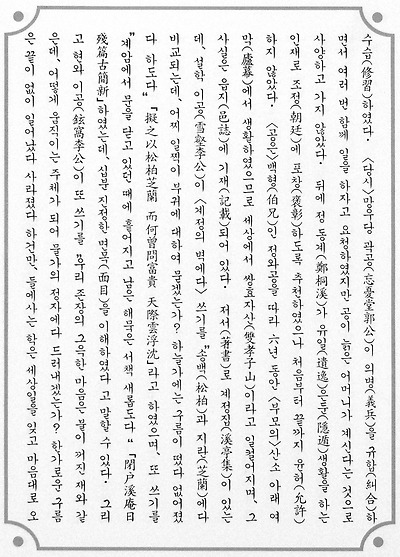 수습(修習)하였다. 〈당시〉망우당 곽공(忘憂堂郭公)이 의병(義兵)을 규합(糾合)하
면서 여러 번 함께 일을 하자고 요청하였지만 공이 늙은 어머니가 계신다는 것으로
사양하고 가지 않았다. 뒤에 정 동계(鄭桐溪)가 유일(遺逸)은둔(隱遁)생활을 하는
인재로 조정(朝廷)에 포창(褒彰)하도록 추천하였으나 처음부터 끝까지 윤허(允許)
하지 않았다. 〈공은〉백형(伯兄)인 정와공을 따라 六년 동안 〈부모의〉산소 아래 여
막(廬幕)에서 생활하였으므로 세상에서 쌍효자산(雙孝子山)이라고 일컬어지며, 그
사실은 읍지(邑誌)에 기재(記載)되어 있다. 저서(著書)로 계정집(溪亭集)이 있는
데, 설학 이공(雪壑李公)이 〈계정의 벽에다〉쓰기를 "송백(松柏)과 지란(芝蘭)에다
비교되는데, 어찌 일찍이 부귀에 대하여 묻겠는가? 하늘가에는 구름이 떴다 없어졌
다 하도다" 『擬之以松柏芝蘭 而何曾問富貴 天際雲浮沈』라고 하였으며, 또 쓰기를
"계암에서 문을 닫고 있던 때에 흩어지고 남은 해묵은 서책 새롭도다" 『閉戶溪庵日
殘篇古簡新』하였는데, 십분 진정한 면목(面目)을 이해하였다고 말할 수 있다. 그리
고 현와 이공(鉉窩李公)이 또 쓰기를 "우리 존장의 그윽한 마음은 불이 꺼진 재와 같
은데, 어떻게 움직이는 주체가 되어 물가의 정자에다 드러내겠는가? 한가로운 구름
은 끝이 없이 일어났다 사라졌다 하건만, 들에 사는 한은 세상일을 잊고 마음대로 오